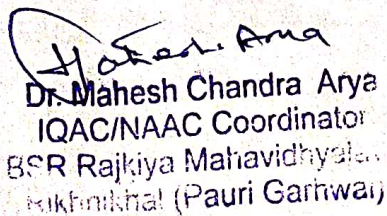 Mahesh Arya
Dr. Mahesh Chandra Arya
IQAC/NAAC Coordinator
BSR Rajkiya Mahavidhyalay
Rikhnikhal (Pauri Garhwal)